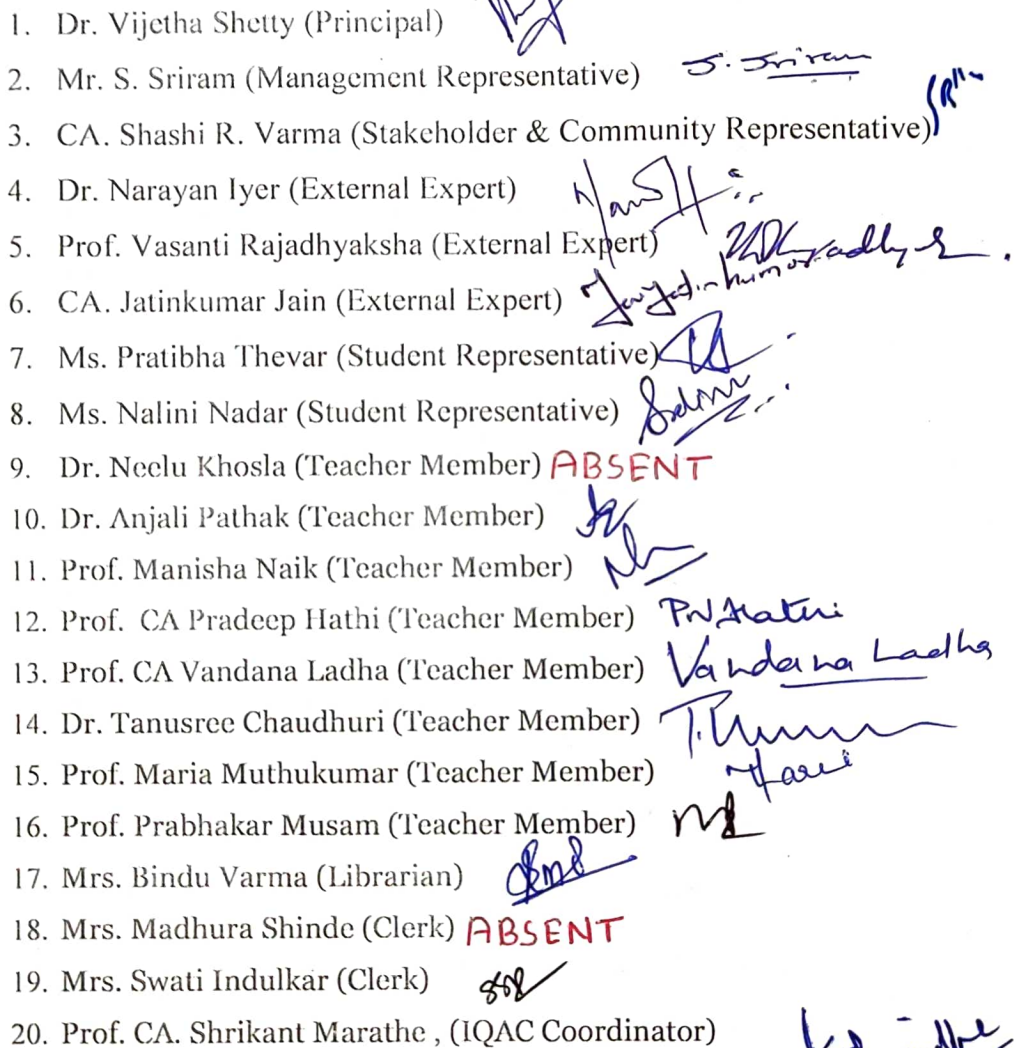 1. Dr. Vijetha Shetty (Principal)
2. Mr. S. Sriram (Management Representative) S. Sriram
3. CA. Shashi R. Varma (Stakeholder & Community Representative)
4. Dr. Narayan Iyer (External Expert)
5. Prof. Vasanti Rajadhyaksha (External Expert)
6. CA. Jatinkumar Jain (External Expert)
7. Ms. Pratibha Thevar (Student Representative)
8. Ms. Nalini Nadar (Student Representative)
9. Dr. Neelu Khosla (Teacher Member) ABSENT
10. Dr. Anjali Pathak (Teacher Member)
11. Prof. Manisha Naik (Teacher Member)
12. Prof. CA Pradeep Hathi (Teacher Member) PNHathi
13. Prof. CA Vandana Ladha (Teacher Member) Vandana Ladha
14. Dr. Tanusree Chaudhuri (Teacher Member)
15. Prof. Maria Muthukumar (Teacher Member)
16. Prof. Prabhakar Musam (Teacher Member)
17. Mrs. Bindu Varma (Librarian)
18. Mrs. Madhura Shinde (Clerk) ABSENT
19. Mrs. Swati Indulkar (Clerk)
20. Prof. CA. Shrikant Marathe , (IQAC Coordinator)